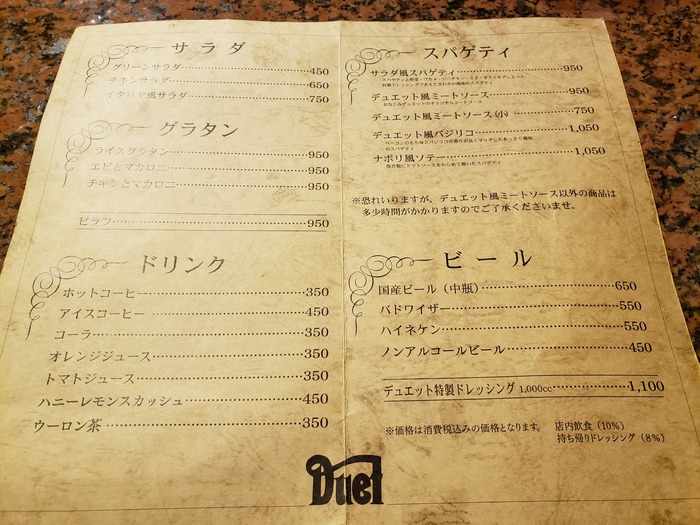 サラダ
グリーンサラダ 450
チキンサラダ 650
イタリヤ風サラダ 750
グラタン
ライスグラタン 950
エビとマカロニ 950
チキンとマカロニ 950
ピラフ 950
ドリンク
ホットコーヒー 350
アイスコーヒー 450
コーラ 350
オレンジジュース 350
トマトジュース 350
ハニーレモンスカッシュ 450
ウーロン茶 350
スパゲティ
サラダ風スパゲティ 950
デュエット風ミートソース 950
おなじみデュエットのオリジナルミートソース
デュエット風ミートソース(小) 750
デュエット風バジリコ 1,050
のスパゲティ
ナポリ風ソテー 1,050
※恐れいりますが、デュエット風ミートソース以外の商品は
多少時間がかかりますのでご了承くださいませ。
ビール
国産ビール(中瓶) 650
バドワイザー 550
ハイネケン 550
ノンアルコールビール 450
デュエット特製ドレッシング 1,000cc 1,100
※価格は消費税込みの価格となります。 店内飲食(10%)
持ち帰りドレッシング(8%)
Duet